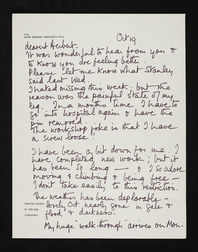 Oct 19
dearest Herbert.
It was wonderful to hear from you &
to know you are feeling better.
Please let me know what Stanley
said last Wed.
I hated missing this week, but the
reason was the painful state of my
leg. In a months time I have to
go into hospital again & have the
pin removed.
The workshop joke is that I have
a screw loose!
I have been a bit down for me. I
have completed new work; but it
has been so long — & I so adore
moving & climbing & being free —
I don't take easily, to this
The weather has been deplorable —
with Oct. nearly gone in gale &
flood & darkness.
My huge walk-through arrives on Mon-